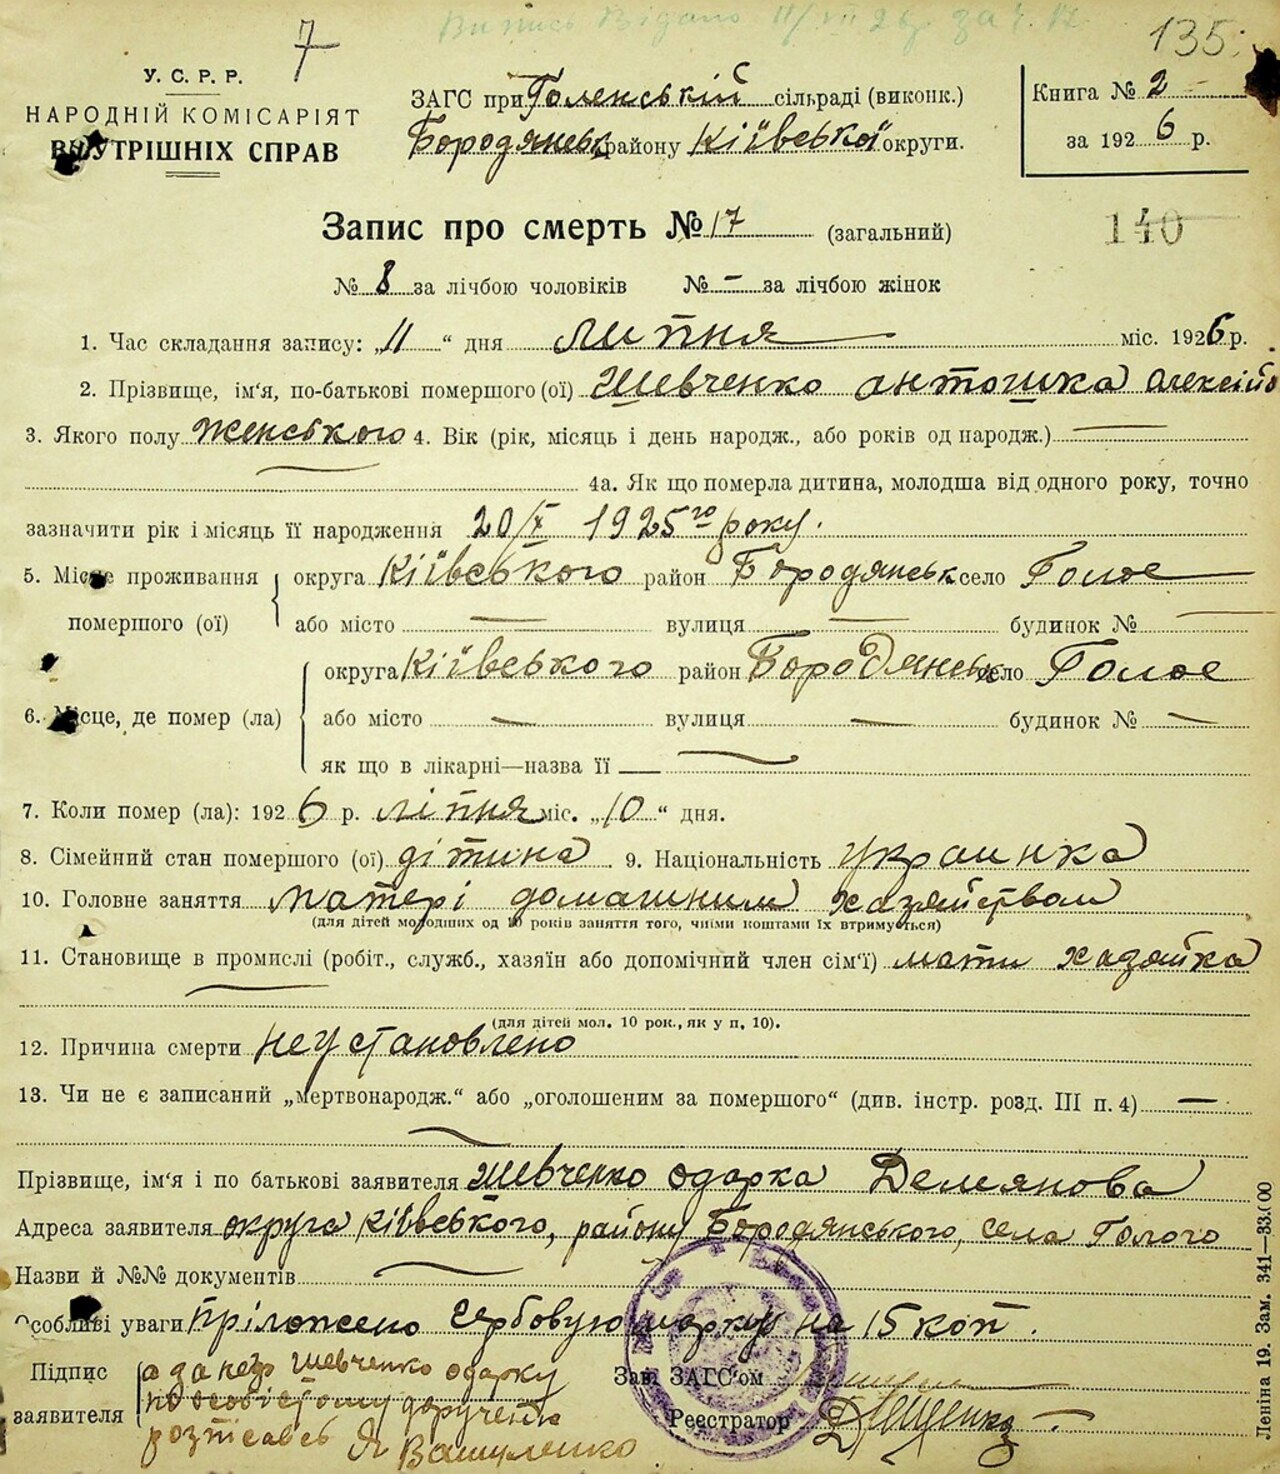 Випись Видано 11/VII 26р. за ч. 17
7
135
У. С. Р. Р.
НАРОДНІЙ КОМІСАРІЯТ
ВНУТРІШНІХ СПРАВ
ЗАГС при Голенській сільраді (виконк.)
Бородянськ району Кіївської округи.
Книга № 2
за 1926 р.
Запис про смерть № 17 (загальний)
140
№ 8 за лічбою чоловіків № — за лічбою жінок
1. Час складання запису: „11“ дня липня міс. 1926 р.
2. Прізвище, ім'я, по-батькові помершого (ої) Шевченко Антошка Олексійо
3. Якого полу женського 4. Вік (рік, місяць і день народж., або років од народж.) —
4а. Як що померла дитина, молодша від одного року, точно
зазначити рік і місяць її народження 20/X 1925го року.
5. Місце проживання помершого (ої) округа Кіївського район Бородянськ село Голое
або місто — вулиця — будинок № —
6. Місце, де помер (ла) округа Кіївського район Бородянськ село Голое
або місто — вулиця — будинок № —
як що в лікарні—назва її —
7. Коли помер (ла): 1926 р. ліпня міс. „10“ дня.
8. Сімейний стан помершого (ої) дітина 9. Національність украинка
10. Головне заняття матері домашним хазяйством
(для дітей молодших од 10 років заняття того, чиїми коштами їх втримується)
11. Становище в промислі (робіт., служб., хазяїн або допомічний член сім'ї) мати хазяйка
(для дітей мол. 10 рок., як у п. 10).
12. Причина смерти неустановлено
13. Чи не є записаний „мертвонародж.“ або „оголошеним за помершого“ (див. інстр. розд. III п. 4) —
Прізвище, ім'я і по батькові заявителя Шевченко Одарка Демянова
Адреса заявителя округа Кіївського, району Бородянського, села Голого
Назви й №№ документів —
Особливі уваги пріложено гербовую марку на 15 коп.
Підпис заявителя а за негр Шевченко Одарку
по особістому доручению
розписавсь Я Вашуленко
Зав. ЗАГС'ом
Реєстратор
Леніна 19. Зам. 341—33.000